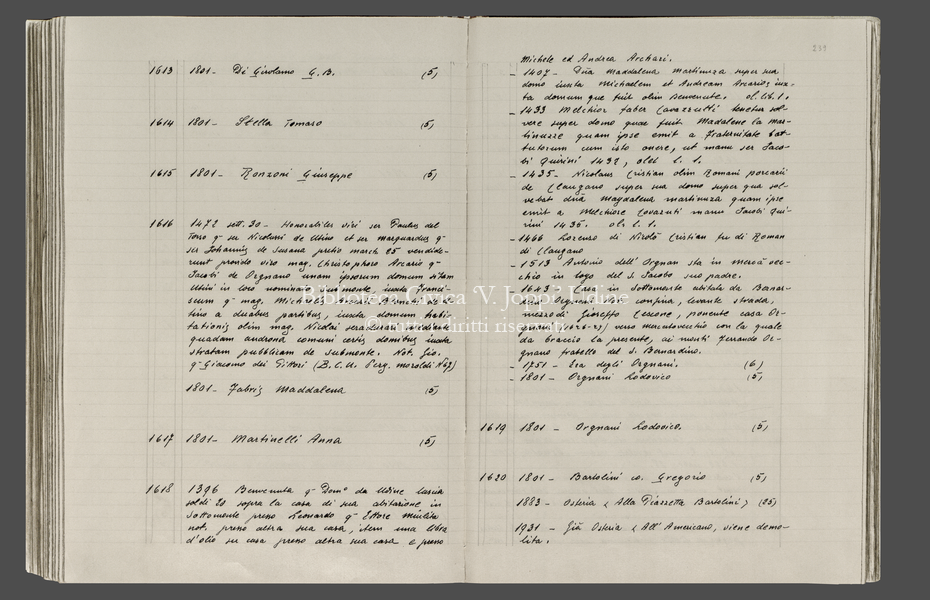 1613 1801 - Di Girolamo G. B. (5)
1614 1801 - Stella Tomaso (5)
1615 1801 - Ronzoni Giuseppe (5)
1616 1472 sett. 30 - Honorabiles viri ser Paulus del
Torso q. ser Nicolussi de Utino et ser Marquardus q.
ser Johannis de Susana pretio march 25 vendide-
runt provido viro mag. Christophoro Arcario q.
Jacobi de Orgnano unam ipsorum domum sitam
Utini in loco nominato Submonte, iuxta Franci-
scum q. mag. Michaelis Arcarii de
tino a duabus partibus, iuxta domum habi-
tationis olim mag. Nicolai
quadam androna comuni certis domibus iuxta
stratam publicam de Submonte. Not. Gio.
q. Giacomo dei Pittori (B.C.U. Perg. Moroldi N° 67)
1801 - Fabris Maddalena (5)
1617 1801 - Martinelli Anna (5)
1618 1396 Benvenuta q. Dom.° da Udine lascia
soldi 20 sopra la casa di sua abitazione in
Sottomonte presso Leonardo q. Ettore Miulita
not. presso altra sua casa, item una libra
d'olio su casa presso altra sua casa e presso
Michele ed Andrea Archari.
- 1407 - Dna Maddalena Martinuza super sua
domo iuxta Michaelem et Andream Arcarios iux-
ta domum que fuit olim Benvenute. ol. lib. 1.
- 1433 Melchior faber Cavazzutti tenetur sol-
vere super domo quae fuit Madalene la Mar-
tinuzze quam ipse emit a Fraternitate Bat-
tutorum cum isto onere, ut manu ser Jaco-
bi Quirini 1432, olei l. 1.
- 1435 - Nicolaus Cristian olim Romani porcarii
de Claugano super sua domo super qua sol-
vebat dna Magdalena Martinuza quam ipse
emit a Melchiore Cavazuti manu Jacobi Qui-
rini 1435. olei l. 1.
- 1466 Lorenzo di Nicolò Cristian fu di Roman
di Claugano
- 1513 Antonio dell' Orgnan sta in mercà vec-
chio in logo del s. Jacobo suo padre.
- 1643 - Casa in Sottomonte abitata da Benar-
confina, levante strada,
mezzodì Gioseffo Cescone, ponente casa Or-
gnani (1626-27) verso Mercatovecchio con la quale
fa braccio la presente, ai monti Ferrando Or-
gnano fratello del s. Bernardino.
- 1751 - Era degli Orgnani. (6)
- 1801 - Orgnani Lodovico (5)
1619 1801 - Orgnani Lodovico. (5)
1620 1801 - Bartolini co. Gregorio (5)
1883 - Osteria "Alla Piazzetta Bartolini" (25)
1931 - Già Osteria "All'Americano", viene demo-
lita.
Biblioteca Civica 'V. Joppi' Udine
© tutti i diritti riservati